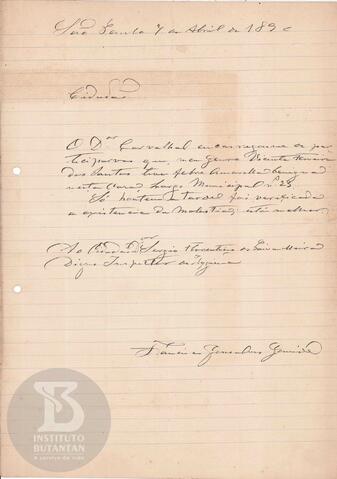 São Paulo 7 de Abril de 189
Cidadão
O Dor Carvalhal encarregou-me de par
ticipar-vos que, Vicente Ferreira
dos Santos tem febre Amarella benigna
nesta Casa, Largo Municipal nº 25.
Só hontem a tarde foi verificada
a existencia da molestia, está melhor
Ao Cidadão Dor Sergio Florentino de Paiva Meira
Digno Inspector de Hygiene
INSTITUTO
BUTANTAN
A serviço da vida